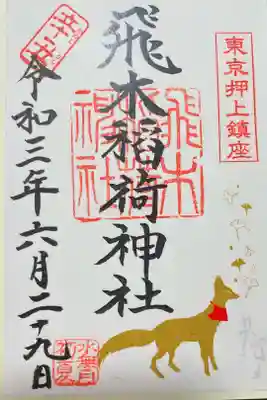 東京押上鎮座
飛木稲荷神社
飛木
稲荷
神社
令和三年六月二十九日
水無月